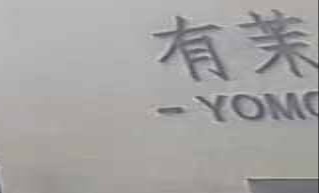 有茉
- YOMO